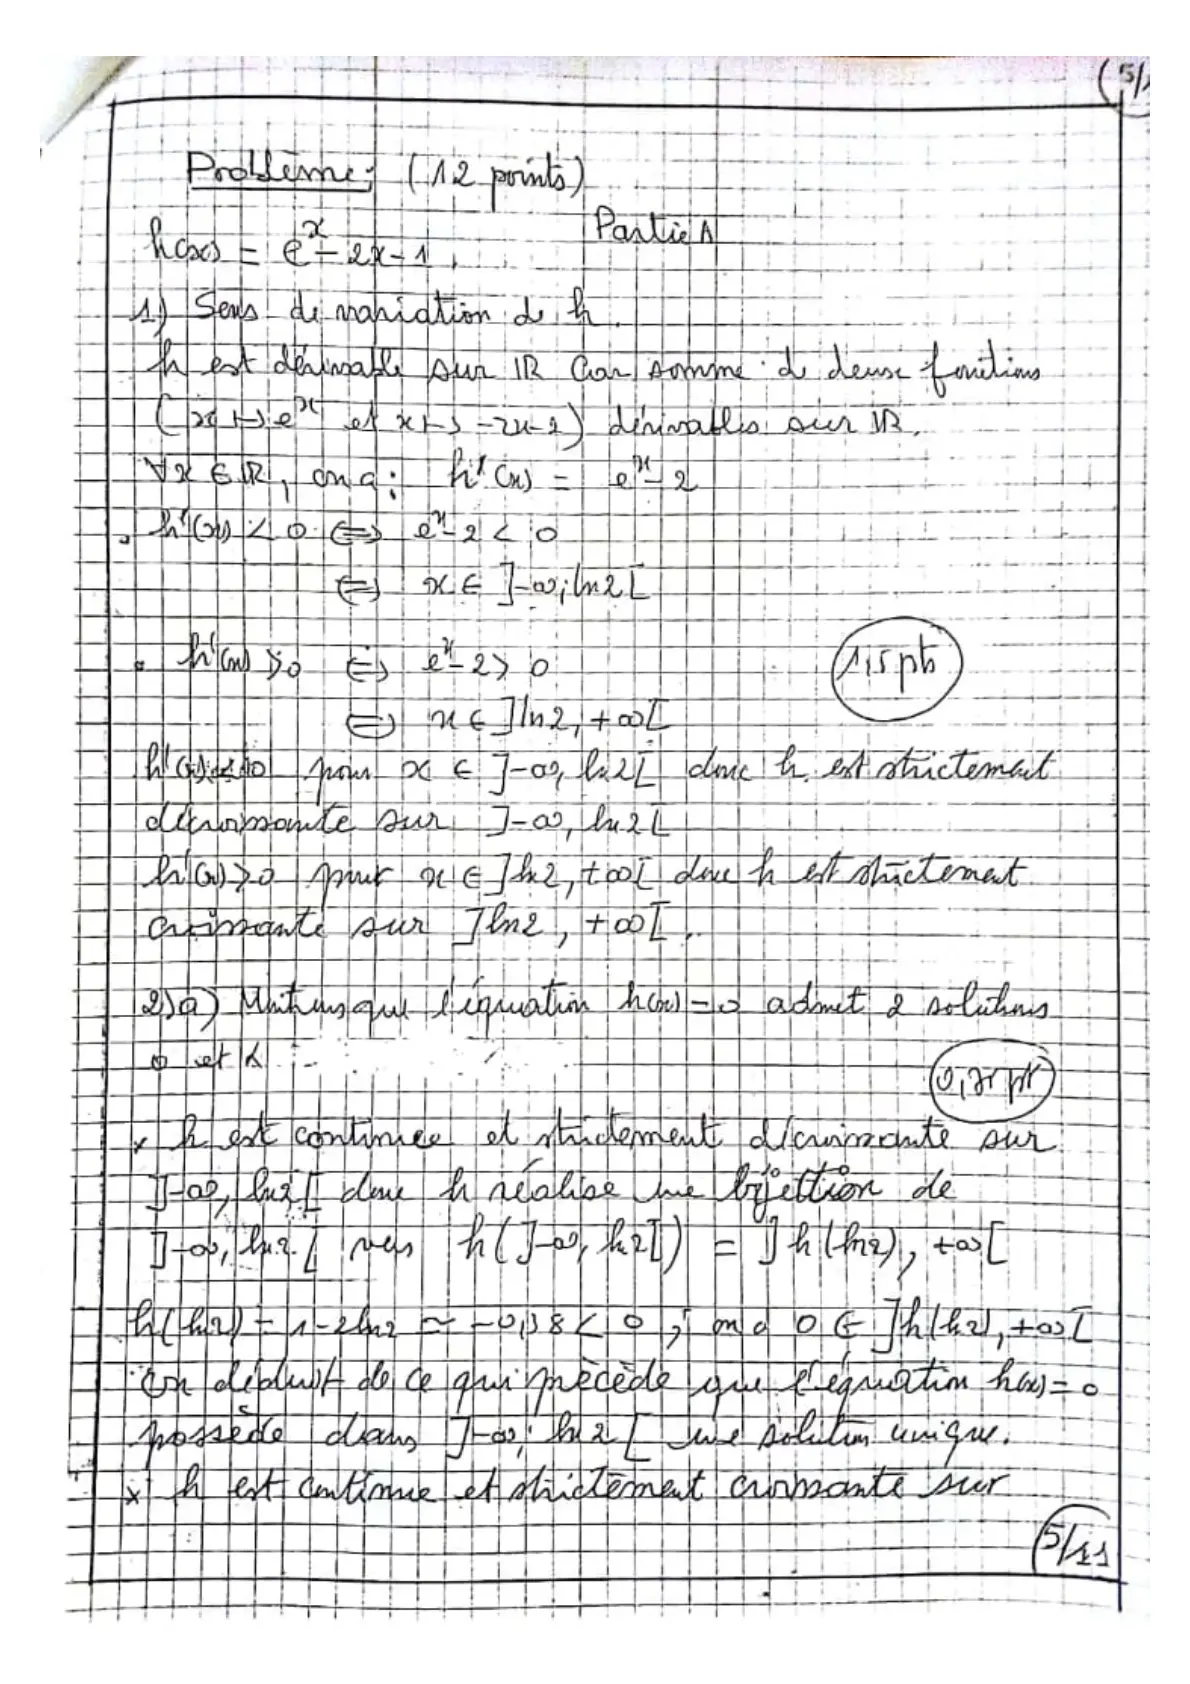 (5/
Problème: (12 points)
Partie A
h(x) = e^x - 2x - 1.
1) Sens de variation de h.
h est dérivable sur IR car somme de deux fonctions
(x ↦ e^x et x ↦ -2x-1) dérivables sur IR.
∀x ∈ IR, on a: h'(x) = e^x - 2
• h'(x) < 0 ⟺ e^x - 2 < 0
⟺ x ∈ ]-∞; ln2[
• h'(x) > 0 ⟺ e^x - 2 > 0
1,5 pts
⟺ x ∈ ]ln2, +∞[
h'(x) < 0 pour x ∈ ]-∞, ln2[ donc h est strictement
décroissante sur ]-∞, ln2[
h'(x) > 0 pour x ∈ ]ln2, +∞[ donc h est strictement
croissante sur ]ln2, +∞[.
2) a) Montrons que l'équation h(x) = 0 admet 2 solutions
0 et α
0,75 pt
× h est continue et strictement décroissante sur
]-∞, ln2[ donc h réalise une bijection de
]-∞, ln2[ vers h(]-∞, ln2[) = ]h(ln2), +∞[
h(ln2) = 1-2ln2 ≃ -0,38 < 0; on a 0 ∈ ]h(ln2), +∞[
on déduit de ce qui précède que l'équation h(x) = 0
possède dans ]-∞; ln2[ une solution unique.
× h est continue et strictement croissante sur
5/11